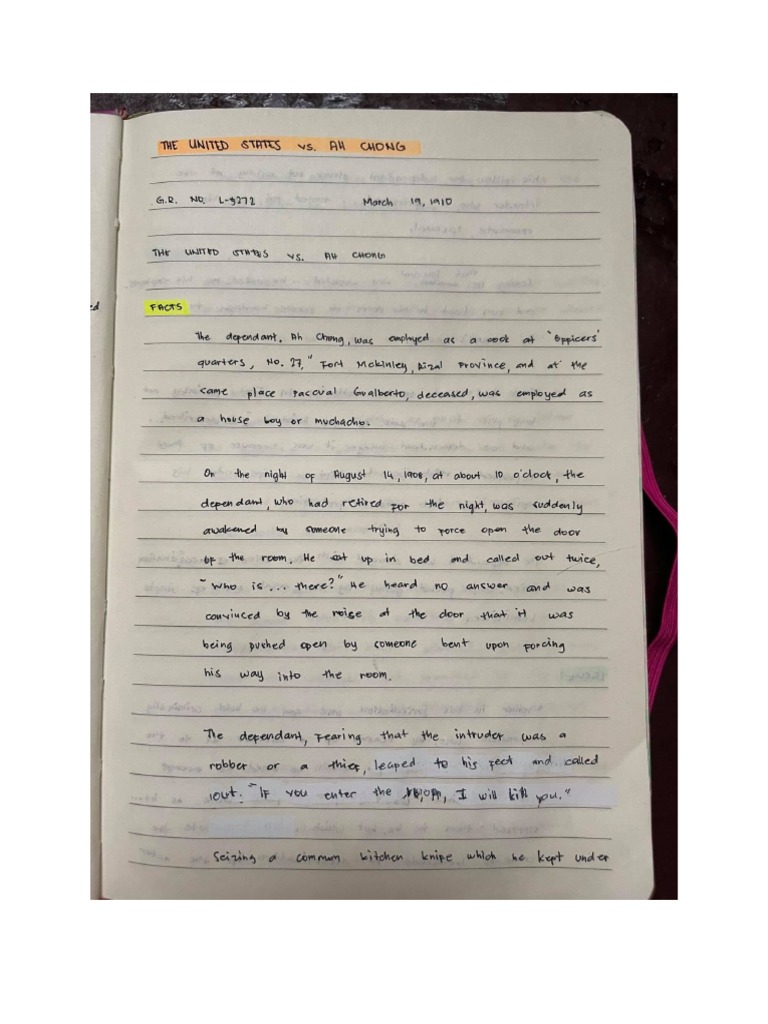 THE UNITED STATES vs. AH CHONG
G.R. NO. L-5272 March 19, 1910
THE UNITED STATES vs. AH CHONG
FACTS
ed
The dependant, Ah Chong, was employed as a cook at "Oppicers'
quarters, No. 27," Fort McKinley, Rizal Province, and at the
same place Pascual Gualberto, deceased, was employed as
a house boy or muchacho.
On the night of August 14, 1908, at about 10 o'clock, the
dependant, who had retired for the night, was suddenly
awakened by someone trying to force open the door
of the room. He sat up in bed and called out twice,
"Who is... there?" He heard no answer and was
convinced by the noise at the door that it was
being pushed open by someone bent upon forcing
his way into the room.
The dependant, fearing that the intruder was a
robber or a thief, leaped to his feet and called
out: "If you enter the room, I will kill you."
Seizing a common kitchen knife which he kept under